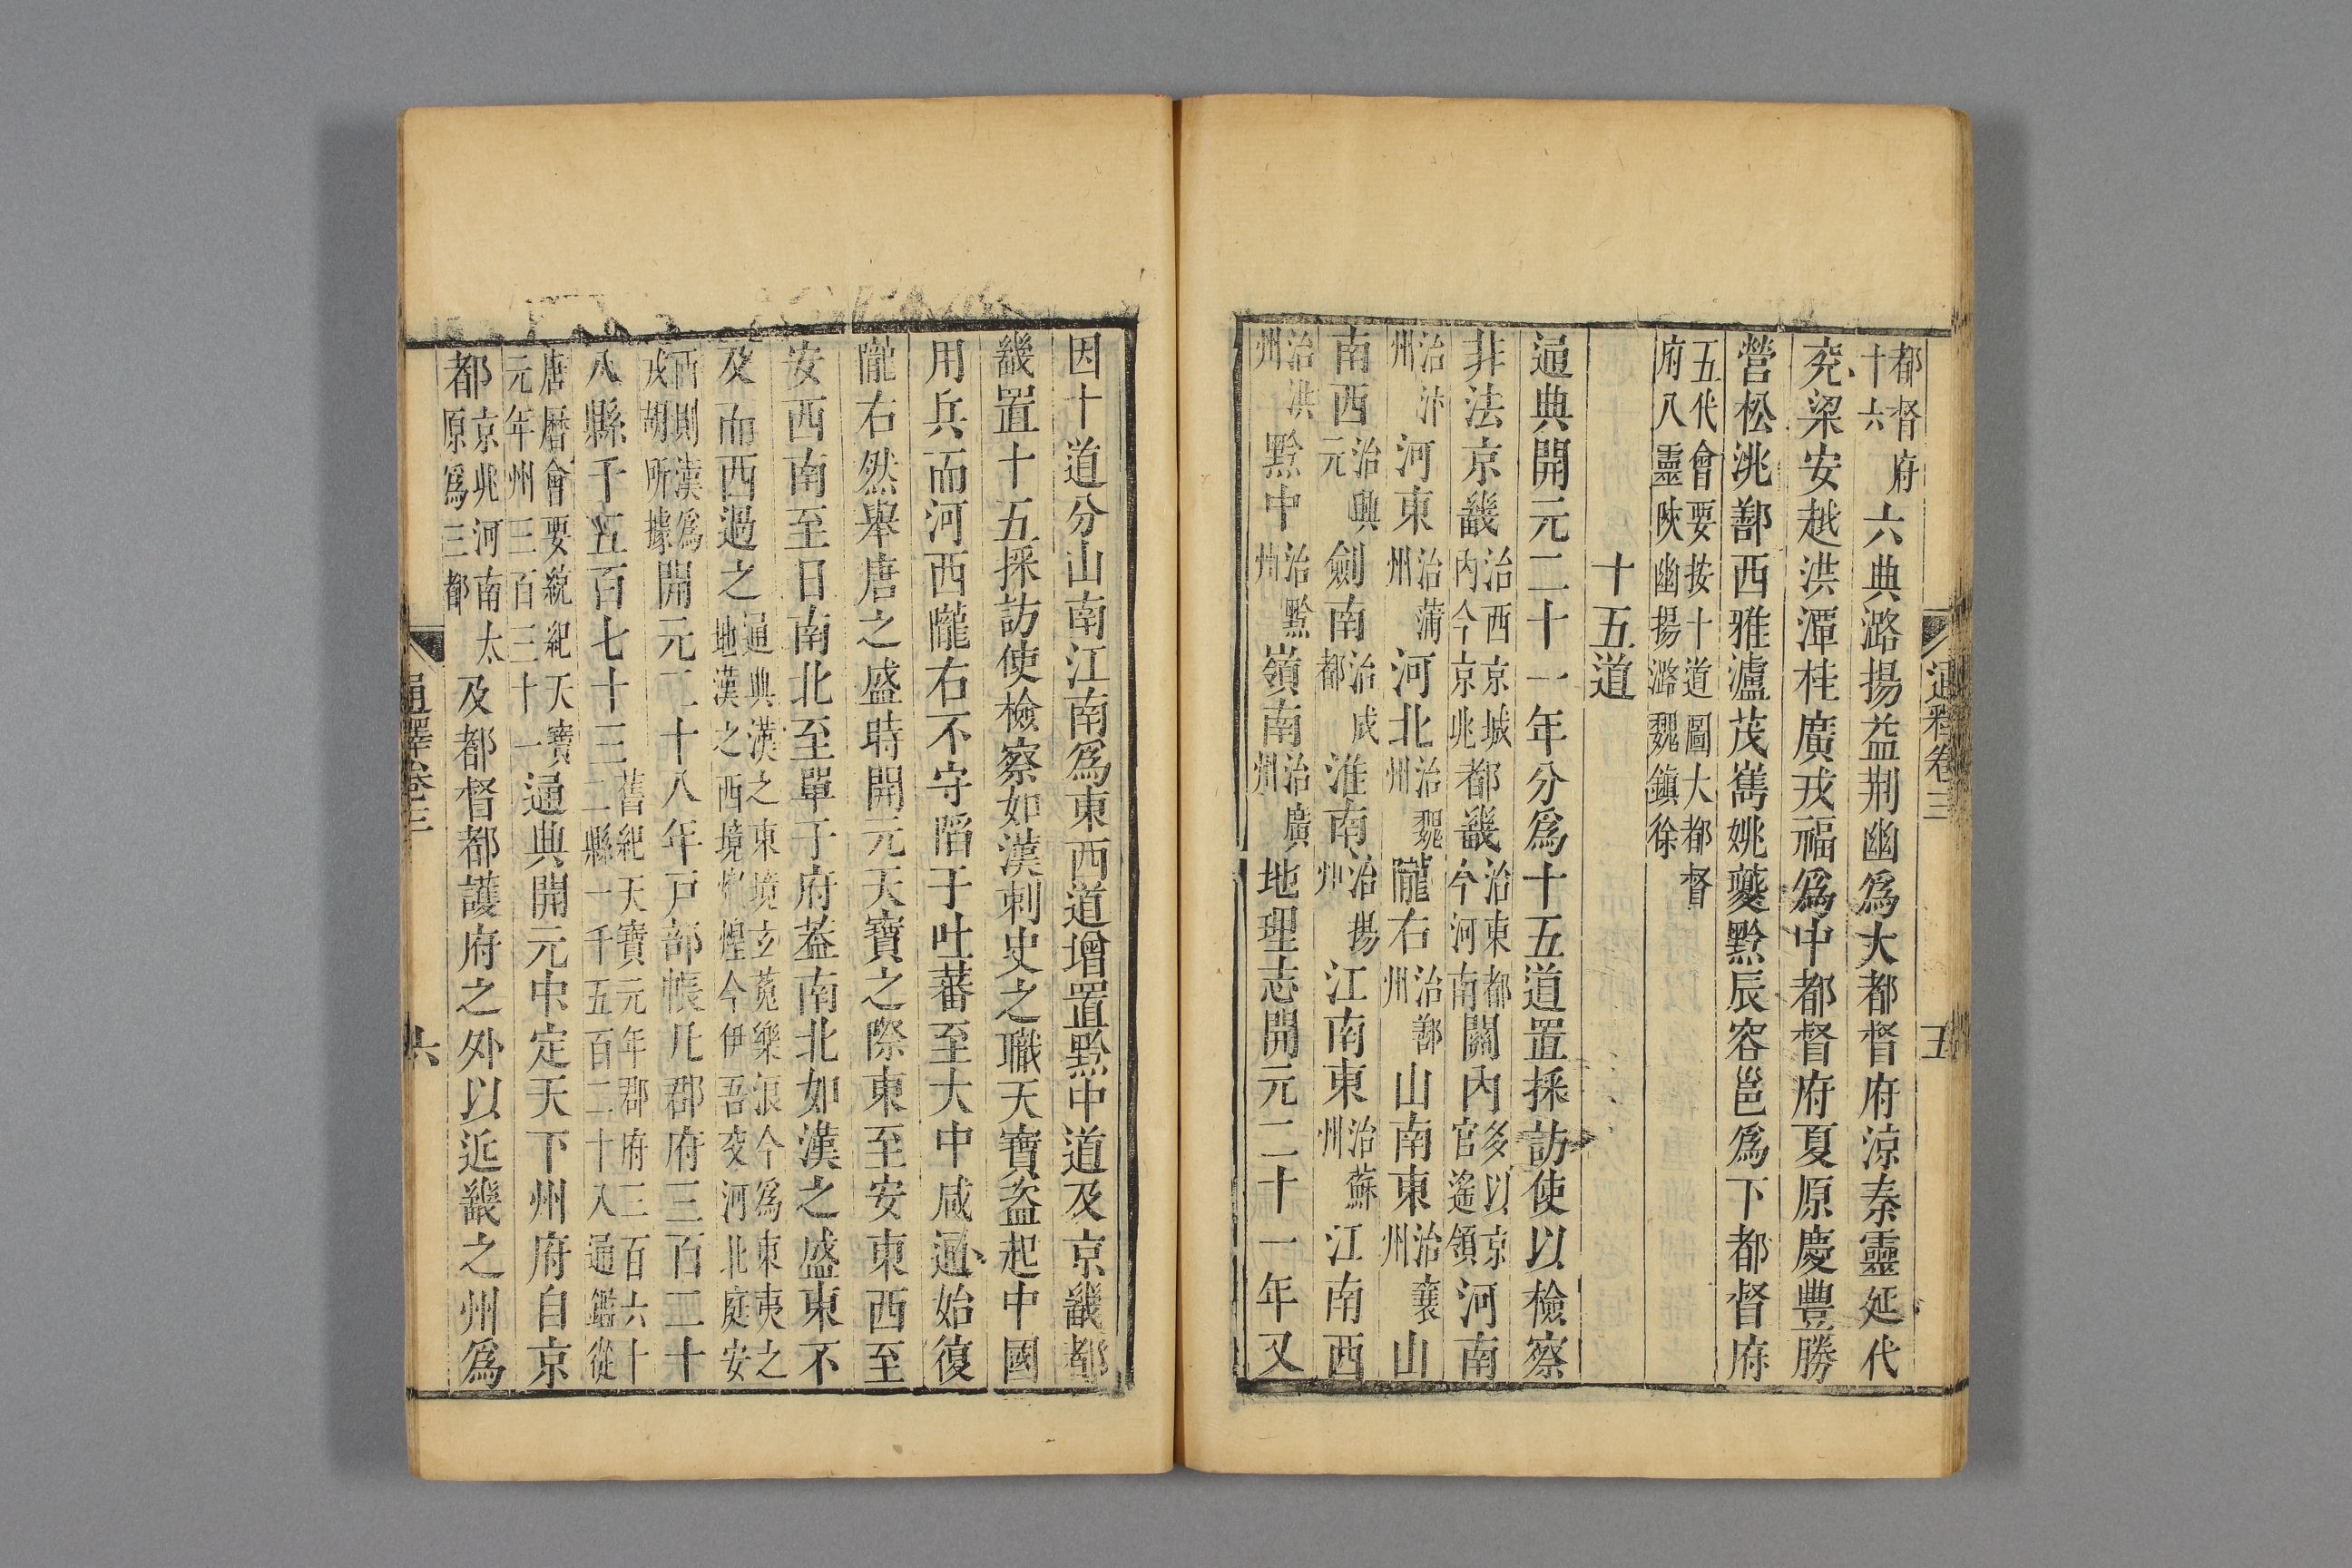 都督府十六六典潞揚益荆幽爲大都督府涼秦靈延代
兖梁安越洪潭桂廣戎福爲中都督府夏原慶豐勝
營松洮鄯西雅瀘茂嶲姚夔黔辰容邕爲下都督府
五代會要按十道圖大都督府八靈陝幽揚潞魏鎮徐
十五道
通典開元二十一年分爲十五道置採訪使以檢察
非法京畿治西京城内今京兆都畿治東都今河南關内多以京官遙領河南
治汴州河東治蒲州河北治魏州隴右治鄯州山南東治襄州山
南西治興元劍南治成都淮南治揚州江南東治蘇州江南西
治洪州黔中治黔州嶺南治廣州地理志開元二十一年又
通釋卷三
五
因十道分山南江南爲東西道增置黔中道及京畿都
畿置十五採訪使檢察如漢刺史之職天寶盜起中國
用兵而河西隴右不守陷于吐蕃至大中咸通始復
隴右然舉唐之盛時開元天寶之際東至安東西至
安西南至日南北至單于府葢南北如漢之盛東不
及而西過之通典漢之東境玄菟樂浪今爲東夷之地漢之西境燉煌今伊吾交河北庭安
西則漢爲戎胡所據開元二十八年戸部帳凡郡府三百二十
八縣千五百七十三舊紀天寶元年郡府三百六十二縣一千五百二十八通鑑從
唐曆會要統紀天寶元年州三百三十一通典開元中定天下州府自京
都京兆河南太原爲三都及都督都護府之外以近畿之州爲
通釋卷三
六